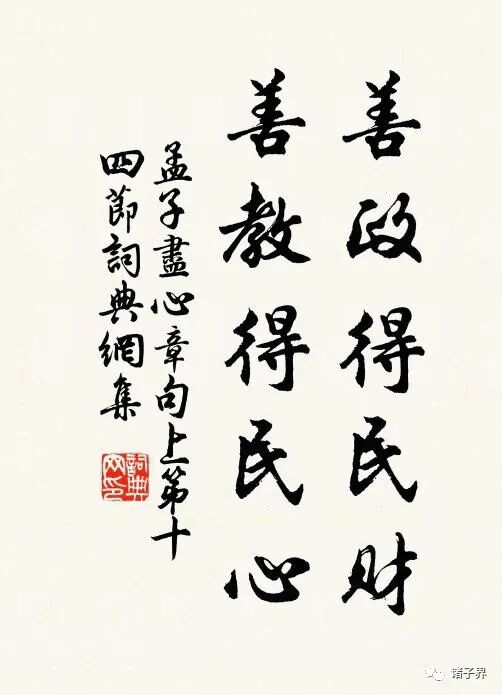 善政得民财
善教得民心
孟子盡心章句上第十
四節詞典網集
詞典
网印
诸子界